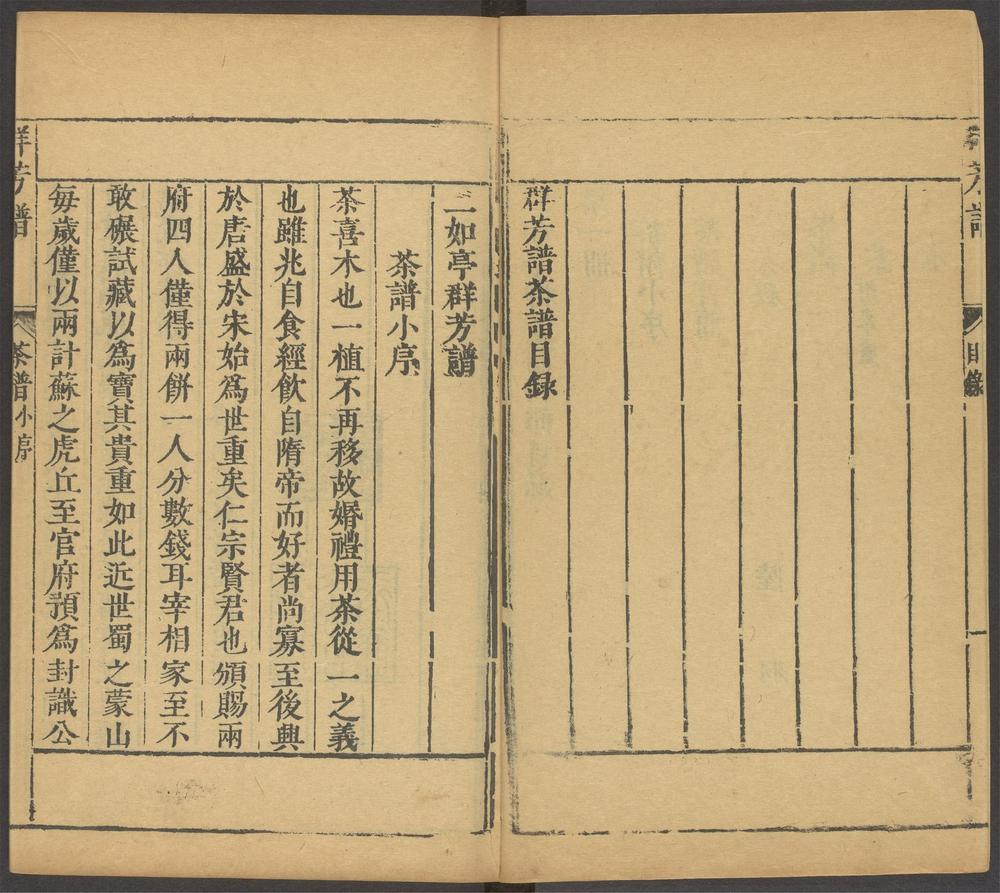 群芳譜
目錄
一
群芳譜茶譜目録
二如亭群芳譜
茶譜小序
茶喜木也一植不再移故婚禮用茶從一之義
也雖兆自食經飲自隋帝而好者尚寡至後興
於唐盛於宋始爲世重矣仁宗賢君也頒賜兩
府四人僅得兩餅一人分數錢耳宰相家至不
敢碾試藏以爲寶其貴重如此近世蜀之蒙山
每歲僅以兩計蘇之虎丘至官府預爲封識公
群芳譜
茶譜小序